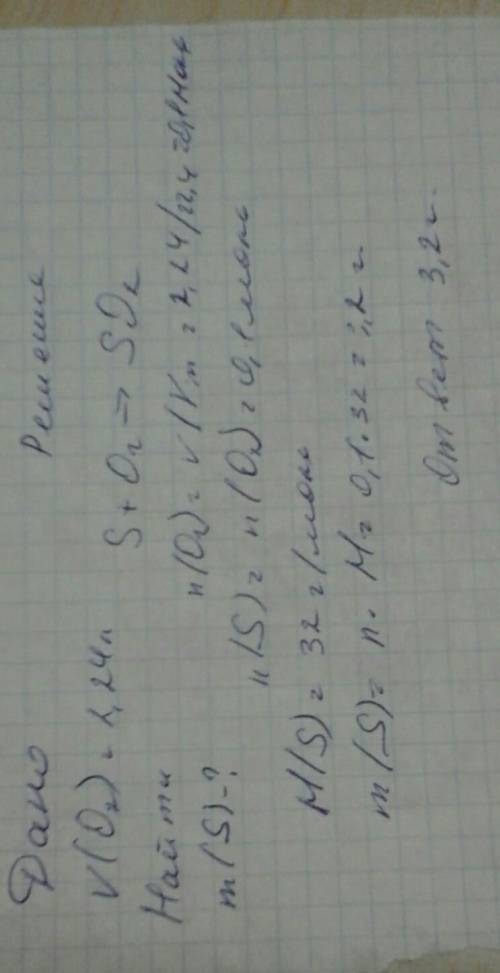 Дано
V(O₂) = 2,24л
Найти
m(S)-?
Решение
S + O₂ => SO₂
n(O₂) = V/Vm = 2,24/22,4 = 0,1 моль
n(S) = n(O₂) = 0,1 моль
M(S) = 32 г/моль
m(S) = n · M = 0,1 · 32 = 3,2 г.
Ответ 3,2 г.